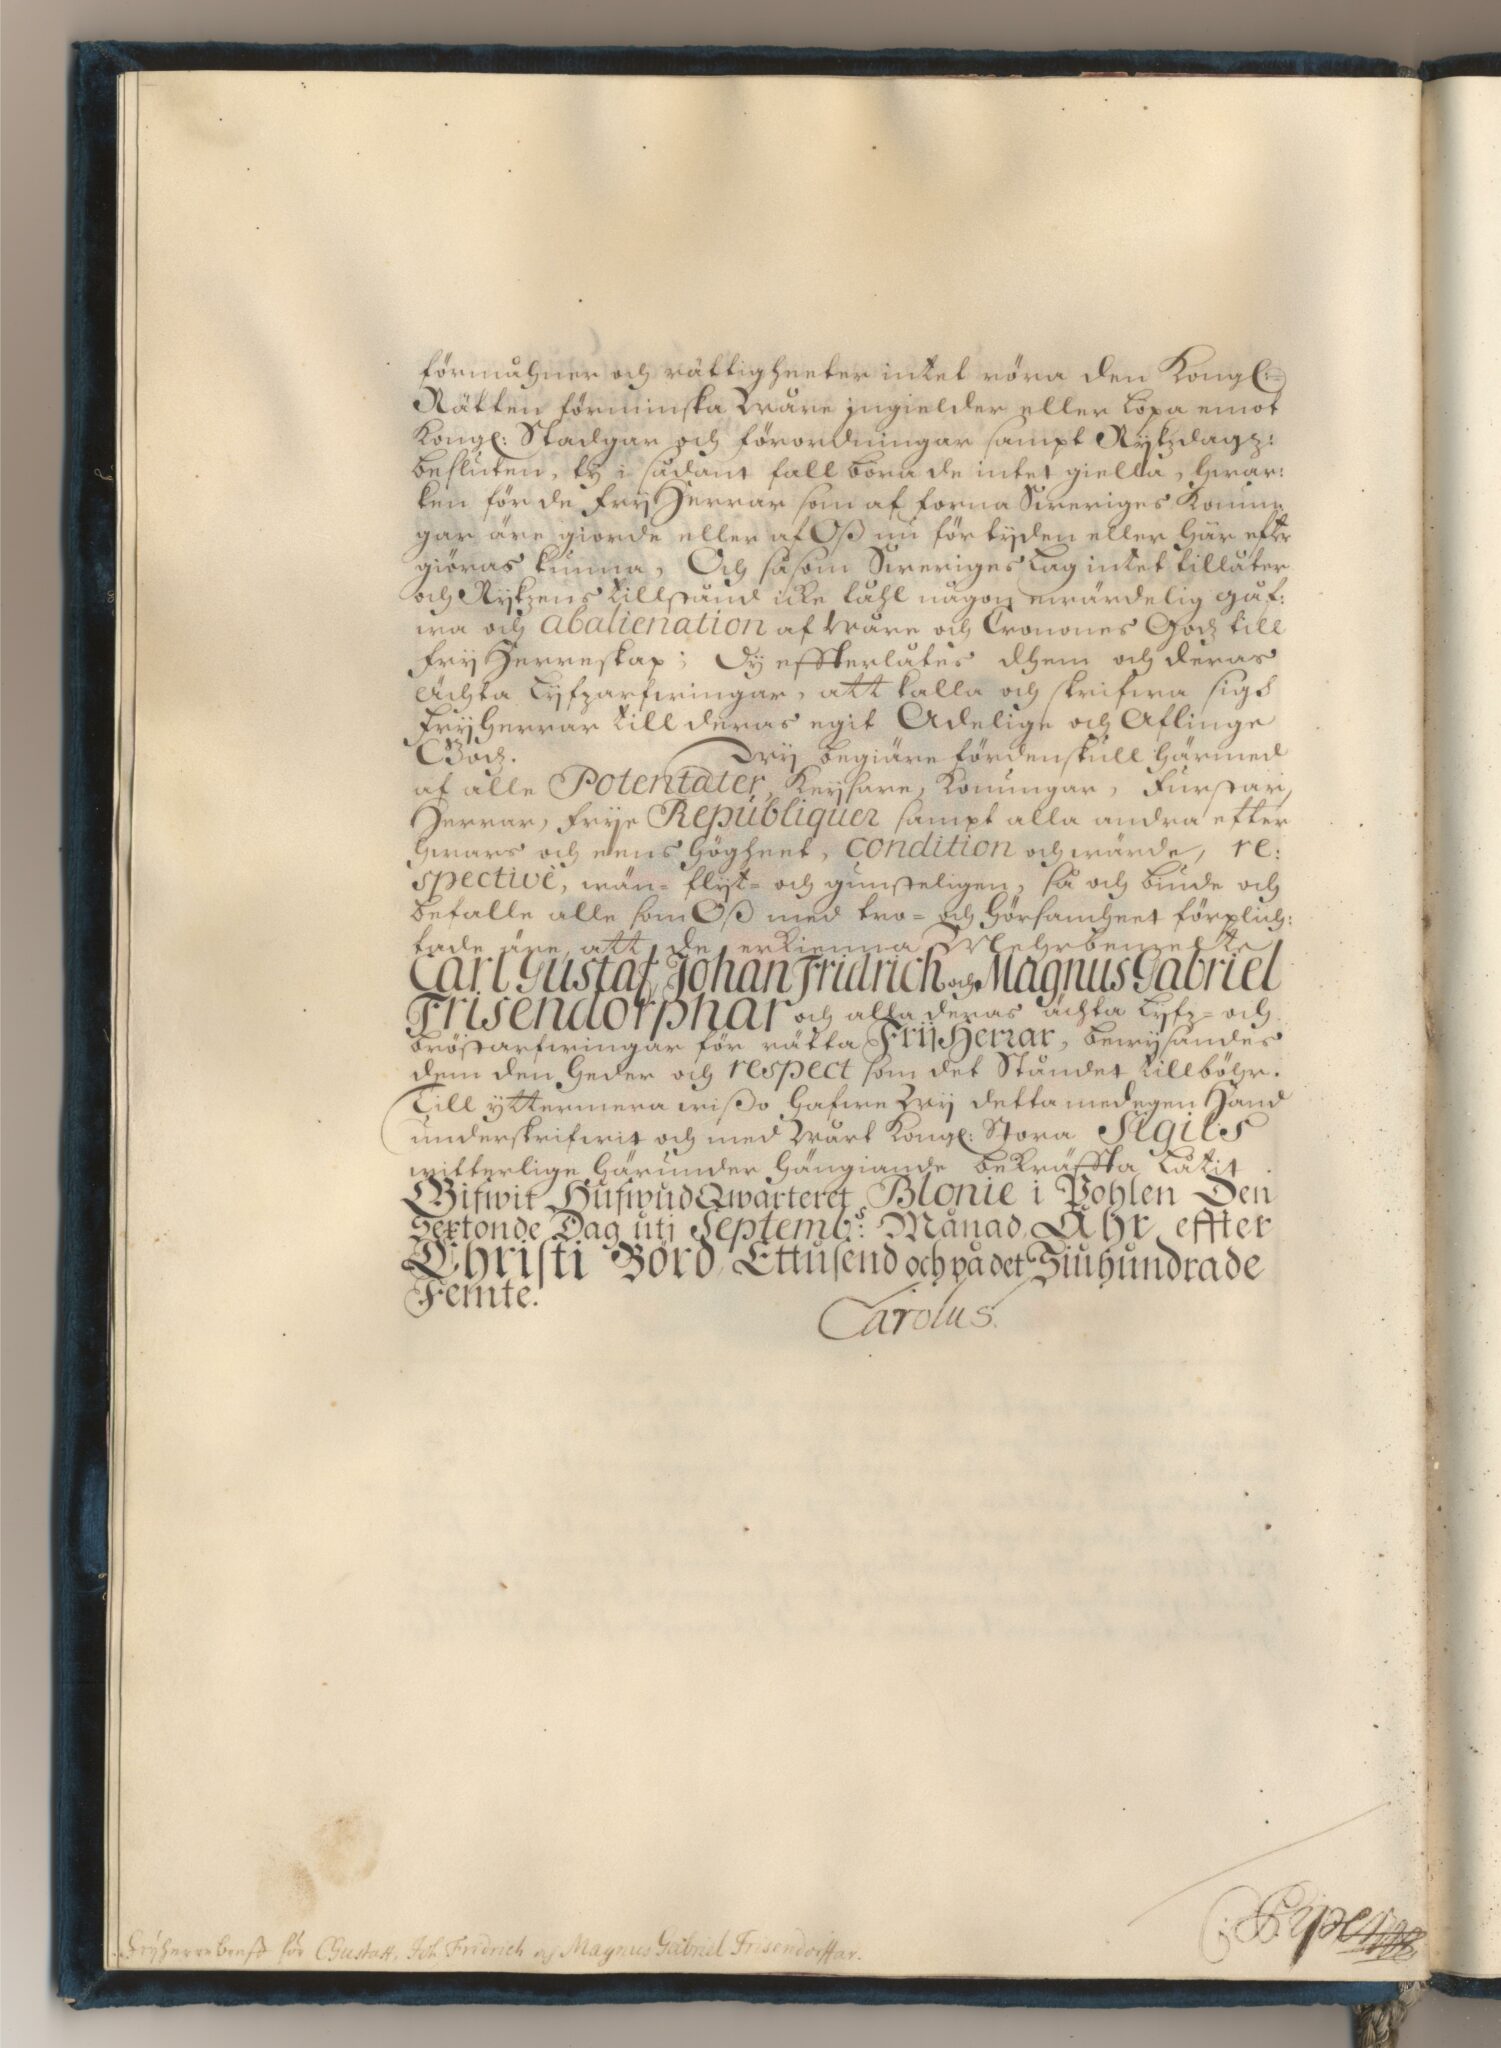 förmåhner och rättigheeter intet röra den Kongl:
Rätten förminska Wåre ingielder eller löpa emot
Kongl: Stadgar och förordningar sampt Rykzdagz:
besluten, ty i sådant fall böra de intet giella, hwar:
ken för de fryHerrar som af forna Sweriges Konun
gar äre giorde eller af Oß nu för tyden eller här efter
giöras kunna, Och såsom Sweriges Lag intet tillåter
och Rykzens tillstånd icke tåhl någon ewärdelig gåf:
wa och abalienation af Wåre och Cronones Godz till
fryHerreskap; Dy effterlåtes dhem och deras
ächta Lyfzarfwingar, att kalla och skrifwa sig
FryHerrar till deras egit Adelige och Aflinge
Godz. Wij begiäre fördenskull härmed
af alle Potentater, Keysare, Konungar, Furstar,
Herrar, Frije Republiquer sampt alla andra efter
hwars och eens högheet, condition och wärde, re:
spective, wän= flyt= och gunsteligen, så och biude och
befalle alle som Oß med tro= och hörsamheet förplich:
tade äre, att de erkienna Mehrbemelte
Carl Gustaf, Johan Fridrich och Magnus Gabriel
Frisendorphar och alla deras ächta Lyfz= och
bröstarfwingar för rätta FrijHerrar, bewysandes
dem den heder och respect som det Ståndet tillböhr.
Till yttermera wißo hafwe Wij detta med egen Hand
underskrifwit och med Wårt Kongl: Stora Sigils
witterlige härunder hängiande bekräffta låtit.
Gifwit HufwudQwarteret Blonie i Pohlen Den
Sextonde Dag uti Septembs: Månad, Åhr effter
Christi Börd, Ettusend och på det Siuhundrade
Femte.
Carolus.
C: Piper
Fryherrebreff för CGustaff, Joh Fridrich och Magnus Gabriel Frisendorffar.